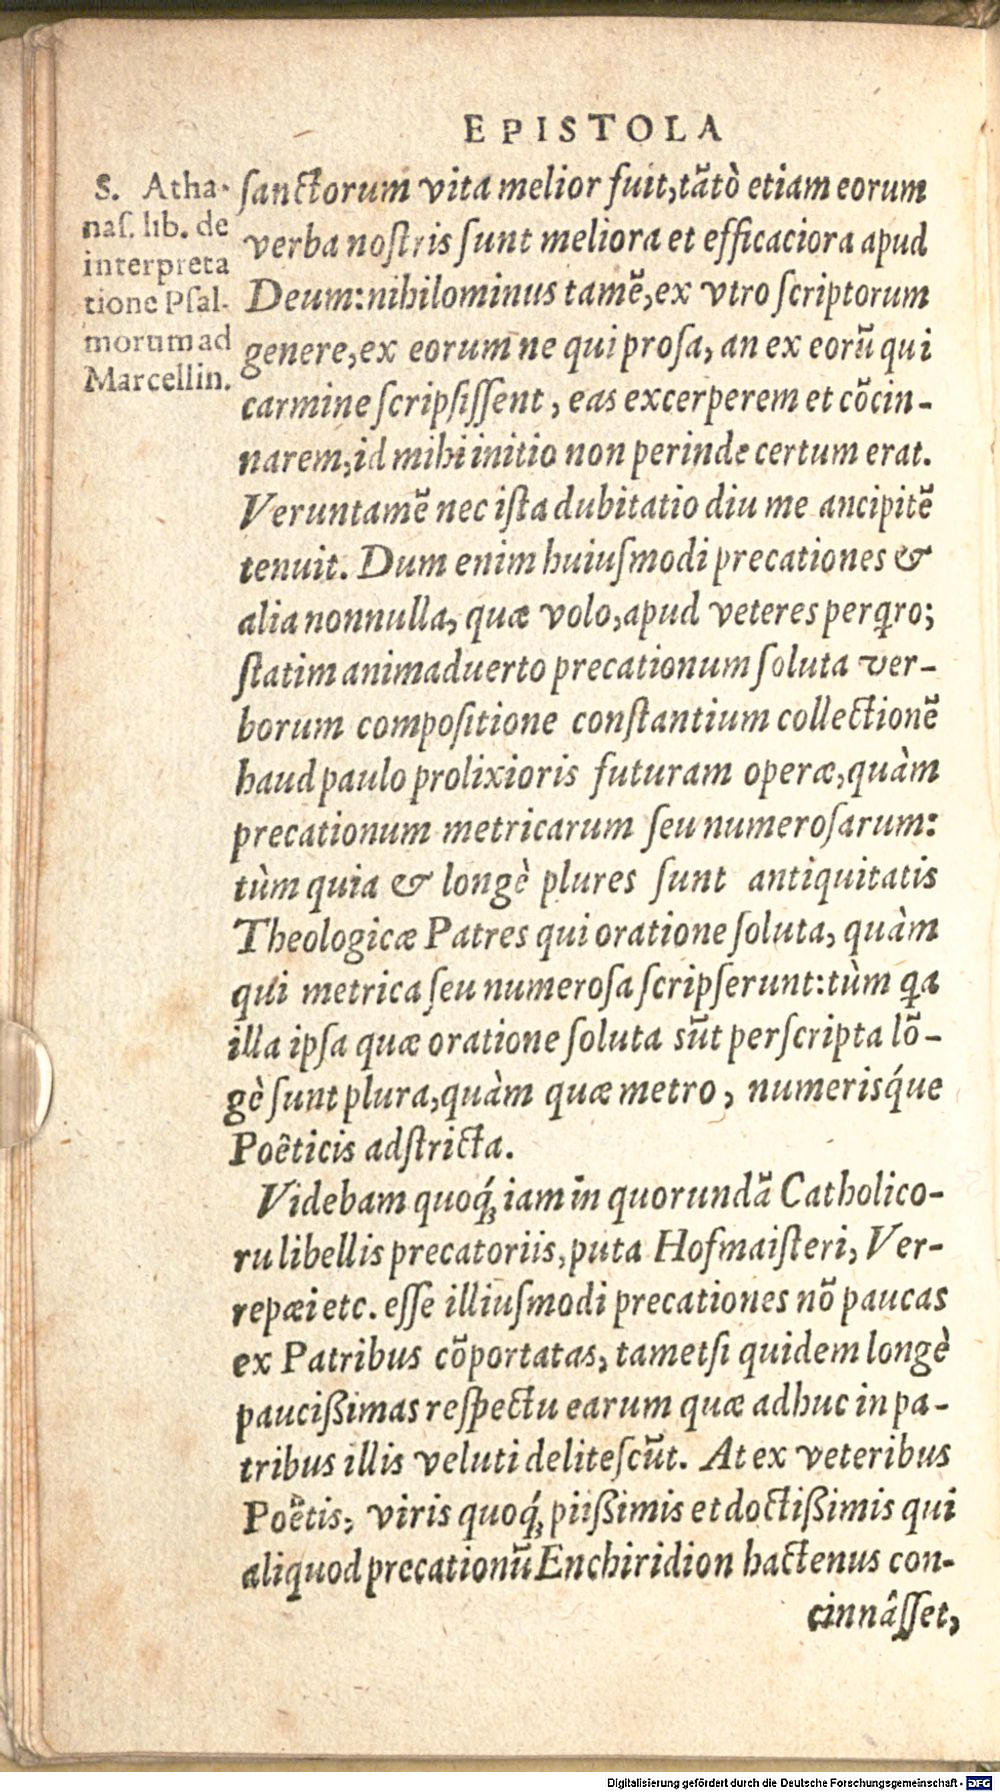 EPISTOLA
S. Atha-
naſ. lib. de
interpreta
tione Pſal-
morum ad
Marcellin.
ſanctorum vita melior fuit, tãtò etiam eorum
verba noſtris ſunt meliora et efficaciora apud
Deum: nihilominus tamẽ, ex vtro ſcriptorum
genere, ex eorum ne qui proſa, an ex eorũ qui
carmine ſcripſiſſent, eas excerperem et cõcin-
narem, id mihi initio non perinde certum erat.
Veruntamẽ nec iſta dubitatio diu me ancipitẽ
tenuit. Dum enim huiuſmodi precationes &
alia nonnulla, quæ volo, apud veteres perq̃ro;
ſtatim animaduerto precationum ſoluta ver-
borum compoſitione conſtantium collectionẽ
haud paulo prolixioris futuram operæ, quàm
precationum metricarum ſeu numeroſarum:
tùm quia & longè plures ſunt antiquitatis
Theologicæ Patres qui oratione ſoluta, quàm
qui metrica ſeu numeroſa ſcripſerunt: tùm q̃a
illa ipſa quæ oratione ſoluta sũt perſcripta lõ-
gè ſunt plura, quàm quæ metro, numerisq́ue
Poêticis adſtricta.
Videbam quoq́; iam in quorundã Catholico-
ru libellis precatoriis, puta Hofmaiſteri, Ver-
repæi etc. eſſe illiuſmodi precationes nõ paucas
ex Patribus cõportatas, tametſi quidem longè
paucißimas reſpectu earum quæ adhuc in pa-
tribus illis veluti deliteſcũt. At ex veteribus
Poẽtis, viris quoq́; piißimis et doctißimis qui
aliquod precationũ Enchiridion hactenus con-
cinnâſſet,
Digitalisierung gefördert durch die Deutsche Forschungsgemeinschaft - DFG